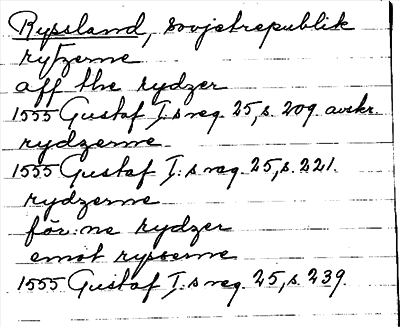 Ryssland, Sovjetrepublik
rytzerne
aff the rydzer
1555 Gustaf I:s reg. 25, s. 209. avskr.
rydzerne
1555 Gustaf I:s reg. 25, s. 221.
rydzerne
för:ne rydzer
emot rysserne
1555 Gustaf I:s reg. 25, s. 239.